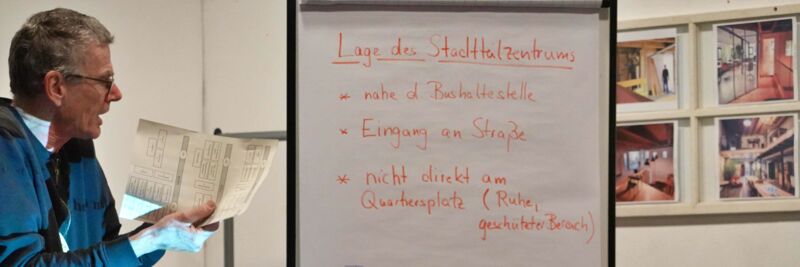 Lage des Stadtteilzentrums
* nahe d. Bushaltestelle
* Eingang an Straße
* nicht direkt am
Quartiersplatz (Ruhe,
geschützter Bereich)